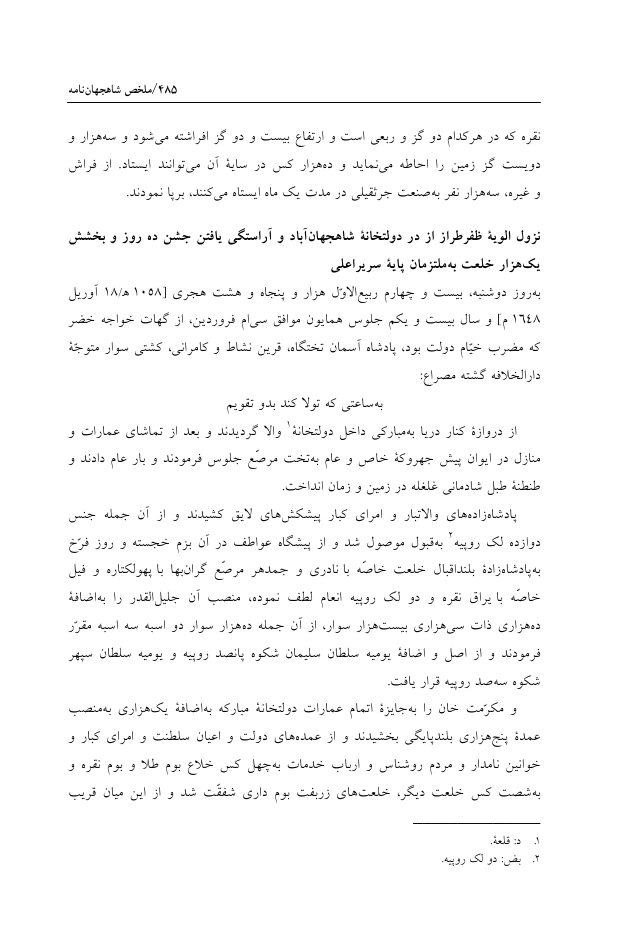 ۴۸۵/ملخص شاهجهان‌نامه
نقره که در هرکدام دو گز و ربعی است و ارتفاع بیست و دو گز افراشته می‌شود و سه‌هزار و
دویست گز زمین را احاطه می‌نماید و ده‌هزار کس در سایۀ آن می‌توانند ایستاد. از فراش
و غیره، سه‌هزار نفر به‌صنعت جرثقیلی در مدت یک ماه ایستاه می‌کنند، برپا نمودند.
نزول الویۀ ظفرطراز از در دولتخانۀ شاهجهان‌آباد و آراستگی یافتن جشن ده روز و بخشش
یک‌هزار خلعت به‌ملتزمان پایۀ سریراعلی
به‌روز دوشنبه، بیست و چهارم ربیع‌الاوّل هزار و پنجاه و هشت هجری [١٠٥٨ ه‍/١٨ آوریل
١٦٤٨ م] و سال بیست و یکم جلوس همایون موافق سی‌ام فروردین، از گهات خواجه خضر
که مضرب خیّام دولت بود، پادشاه آسمان تختگاه، قرین نشاط و کامرانی، کشتی سوار متوجّۀ
دارالخلافه گشته مصراع:
به‌ساعتی که تولا کند بدو تقویم
از دروازۀ کنار دریا به‌مبارکی داخل دولتخانۀ۱ والا گردیدند و بعد از تماشای عمارات و
منازل در ایوان پیش جهروکۀ خاص و عام به‌تخت مرصّع جلوس فرمودند و بار عام دادند و
طنطنۀ طبل شادمانی غلغله در زمین و زمان انداخت.
پادشاه‌زاده‌های والاتبار و امرای کبار پیشکش‌های لایق کشیدند و از آن جمله جنس
دوازده لک روپیه۲ به‌قبول موصول شد و از پیشگاه عواطف در آن بزم خجسته و روز فرّخ
به‌پادشاه‌زادۀ بلنداقبال خلعت خاصّه با نادری و جمدهر مرصّع گران‌بها با پهولکتاره و فیل
خاصّه با یراق نقره و دو لک روپیه انعام لطف نموده، منصب آن جلیل‌القدر را به‌اضافۀ
ده‌هزاری ذات سی‌هزاری بیست‌هزار سوار، از آن جمله ده‌هزار سوار دو اسبه سه اسبه مقرّر
فرمودند و از اصل و اضافۀ یومیه سلطان سلیمان شکوه پانصد روپیه و یومیه سلطان سپهر
شکوه سه‌صد روپیه قرار یافت.
و مکرّمت خان را به‌جایزۀ اتمام عمارات دولتخانۀ مبارکه به‌اضافۀ یک‌هزاری به‌منصب
عمدۀ پنج‌هزاری بلندپایگی بخشیدند و از عمده‌های دولت و اعیان سلطنت و امرای کبار و
خوانین نامدار و مردم روشناس و ارباب خدمات به‌چهل کس خلاع بوم طلا و بوم نقره و
به‌شصت کس خلعت دیگر، خلعت‌های زربفت بوم داری شفقّت شد و از این میان قریب
۱. د: قلعۀ.
۲. بض: دو لک روپیه.